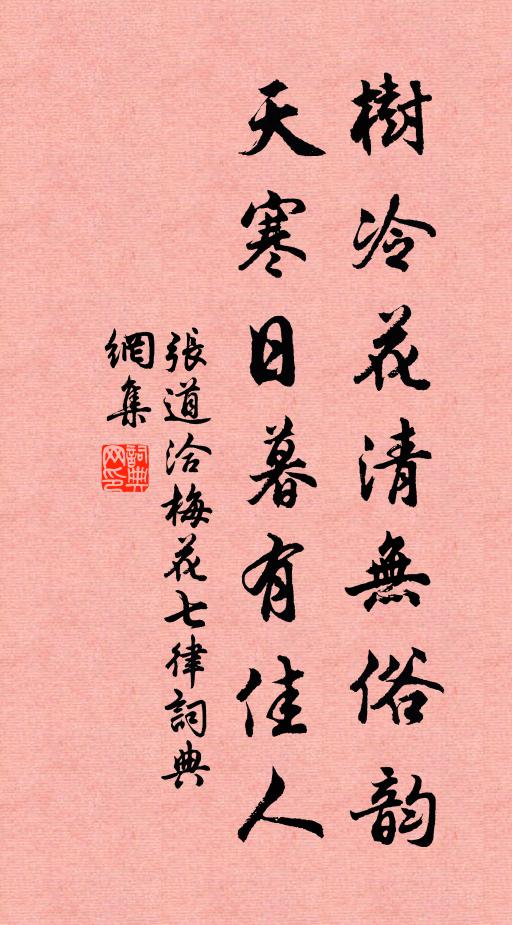 樹冷花清無俗韵
天寒日暮有佳人
張道洽梅花七律詞典
網集
詞典
网印